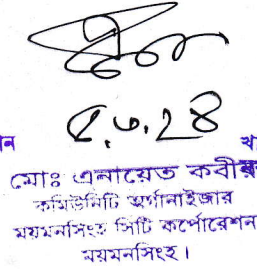 ৫.৩.২৪
ন
খ
মোঃ এনায়েত কবীর
কমিউনিটি অর্গানাইজার
ময়মনসিংহ সিটি কর্পোরেশন
ময়মনসিংহ।